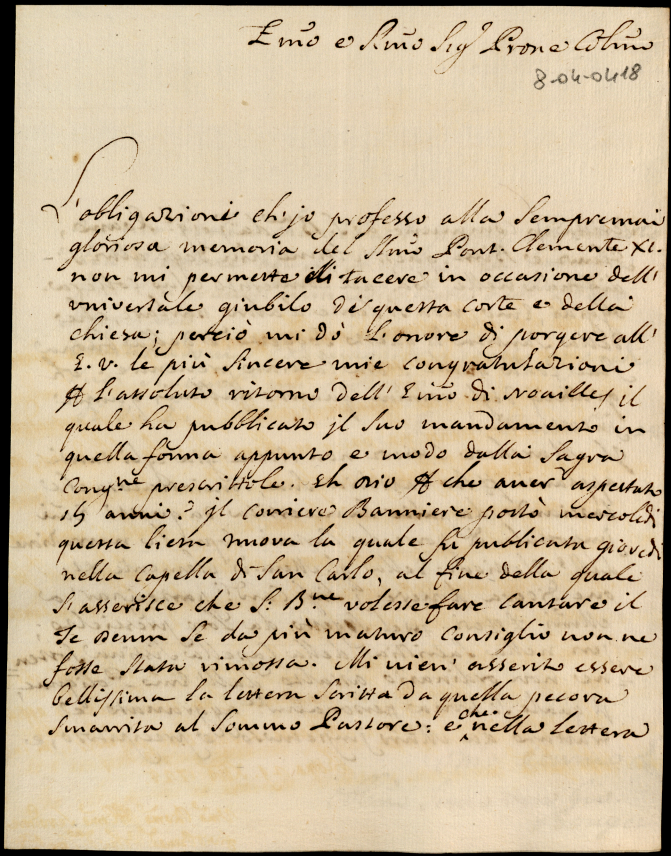 Em̃o e Rm̃o Sig.r Prone Colm̃o
8-04-0418
L'obligazioni ch'jo professo alla Sempremai
gloriosa memoria del Sm̃o Pont. Clemente XI.
non mi permette di tacere in occasione dell'
vniversale giubilo di questa corte e della
chiesa; perciò mi dò l'onore di porgere all'
E. v. le più sincere mie congratulazioni
l'assoluto ritorno dell' Em̃o di Noailles, il
quale ha pubblicato jl suo mandamento in
quella forma appunto e modo dalla Sagra
Cong.ne prescrittole. Eh Dio che aver aspettato
15 anni? jl corriere Banniere portò mercoledì
questa lieta nuova la quale fu publicata giovedì
nella Capella di San Carlo, al fine della quale
s'asserisce che S: B.ne volesse fare cantare il
Te Deum se da più maturo consiglio non ne
fosse stata rimossa. Mi vien' asserito essere
bellissima la lettera scritta da quella pecora
smarrita al Sommo Pastore: e che nella lettera